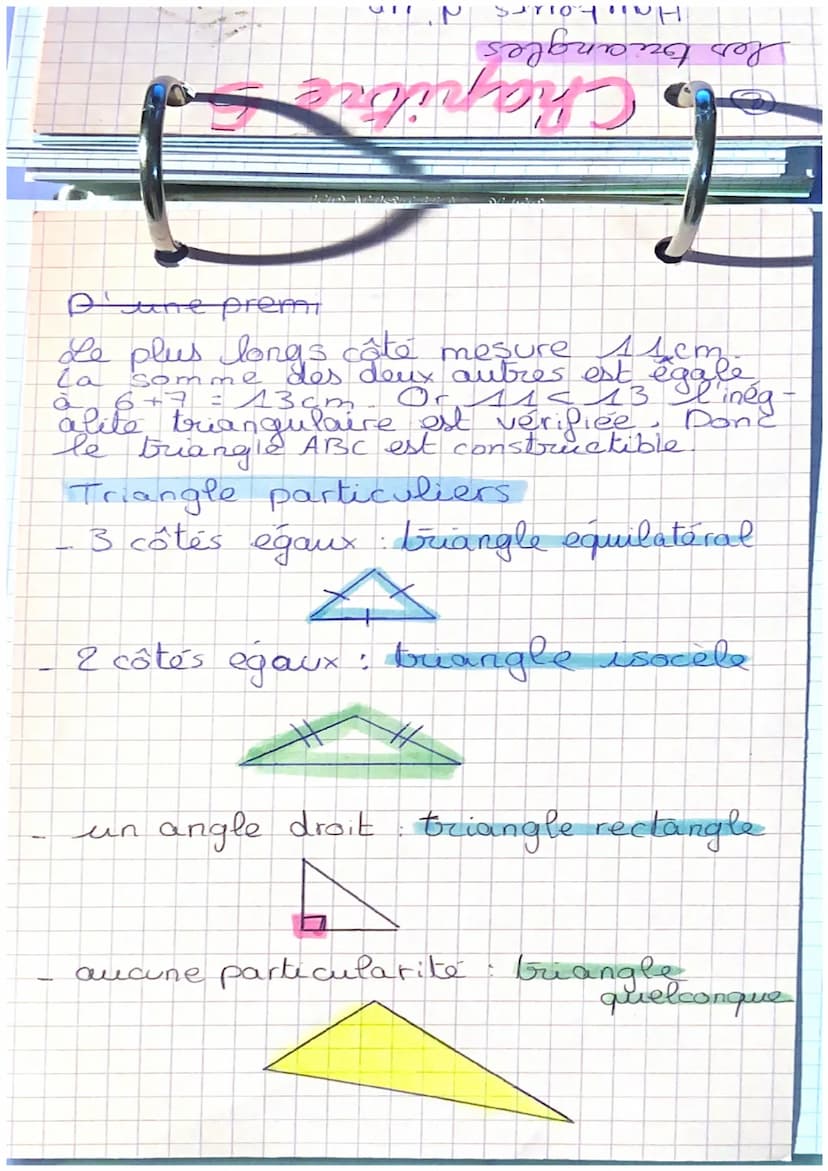 ② Chapitre 5
Les triangles
Hauteurs d'un
D'une premi
Le plus longs côté mesure 11cm.
La somme des deux autres est égale
à 6+7 = 13cm. Or 11< 13 l'inég-
alité triangulaire est vérifiée. Donc
le triangle ABC est constructible.
Triangle particuliers
- 3 côtés égaux : triangle équilatéral
- 2 côtés égaux : triangle isocèle
- un angle droit : triangle rectangle
- aucune particularité : triangle
quelconque